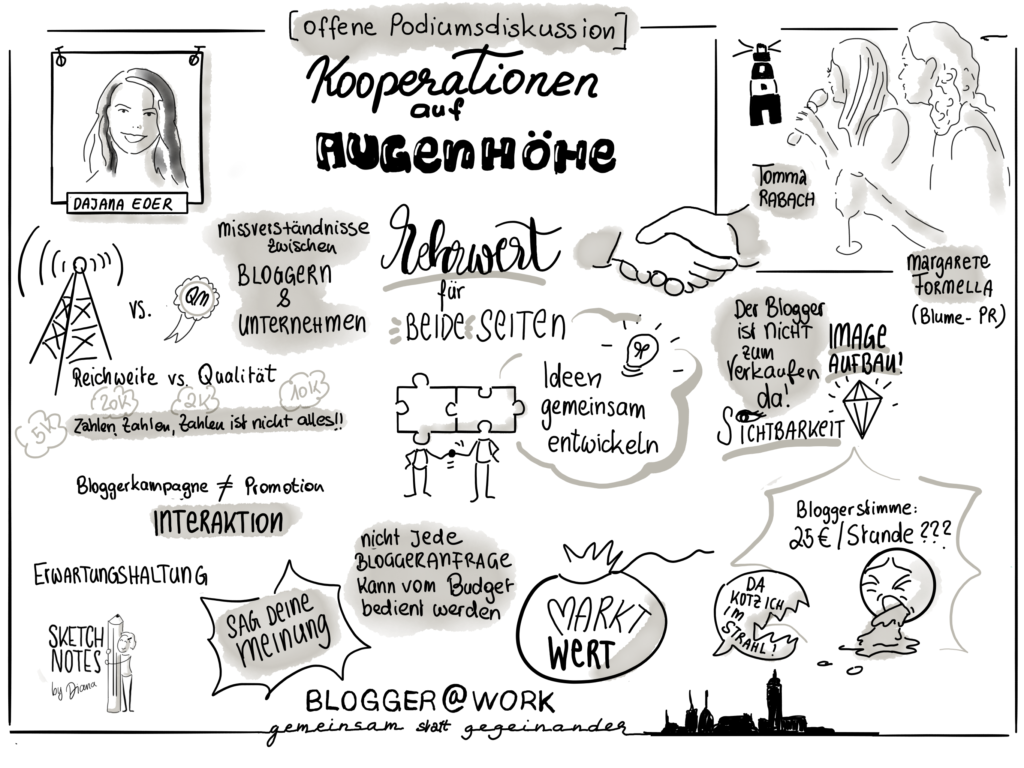 [offene Podiumsdiskussion]
Kooperationen
auf
AUGENHÖHE
DAJANA EDER
Tomma
RABACH
MARGARETE
FORMELLA
(Blume-PR)
missverständnisse
zwischen
BLOGGERN
&
UNTERNEHMEN
Mehrwert
für
BEIDE SEITEN
VS.
QM
Reichweite vs. Qualität
5K
20K
2K
10K
Zahlen, Zahlen, Zahlen ist nicht alles!!
Ideen
gemeinsam
entwickeln
Der Blogger
ist nicht
zum
Verkaufen
da!
IMAGE
AUFBAU!
SICHTBARKEIT
Bloggerkampagne ≠ Promotion
INTERAKTION
ERWARTUNGSHALTUNG
SAG Deine
meinung
nicht Jede
BLOGGERANFRAGE
Kann vom Budget
bedient werden
MARKT
WERT
Bloggerstimme:
25€/Stunde ???
DA
KOTZ ICH
IM
STRAHL!
SKETCH
NOTES
by Diana
BLOGGER@WORK
gemeinsam statt gegeinander